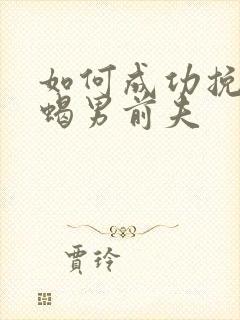 如何成功挽
蝎男前夫
贾玲